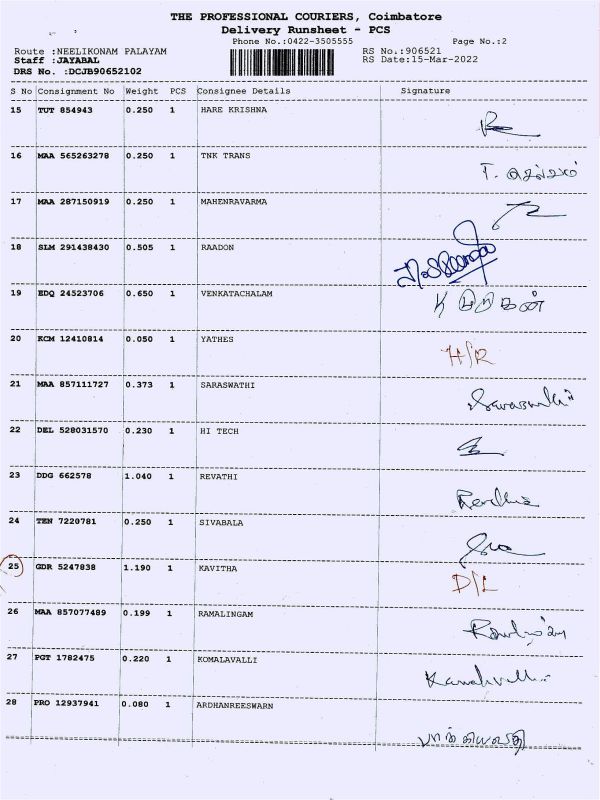 THE PROFESSIONAL COURIERS, Coimbatore
Delivery Runsheet - PCS
Phone No.:0422-3505555 Page No.:2
Route :NEELIKONAM PALAYAM RS No.:906521
Staff :JAYABAL RS Date:15-Mar-2022
DRS No. :DCJB90652102
S No Consignment No Weight PCS Consignee Details Signature
15 TUT 854943 0.250 1 HARE KRISHNA
16 MAA 565263278 0.250 1 TNK TRANS
17 MAA 287150919 0.250 1 MAHENRAVARMA
18 SLM 291438430 0.505 1 RAADON
19 EDQ 24523706 0.650 1 VENKATACHALAM
20 KCM 12410814 0.050 1 YATHES H/R
21 MAA 857111727 0.373 1 SARASWATHI
22 DEL 528031570 0.230 1 HI TECH
23 DDG 662578 1.040 1 REVATHI
24 TEN 7220781 0.250 1 SIVABALA
25 GDR 5247838 1.190 1 KAVITHA D/L
26 MAA 857077489 0.199 1 RAMALINGAM
27 PGT 1782475 0.220 1 KOMALAVALLI
28 PRO 12937941 0.080 1 ARDHANREESWARN